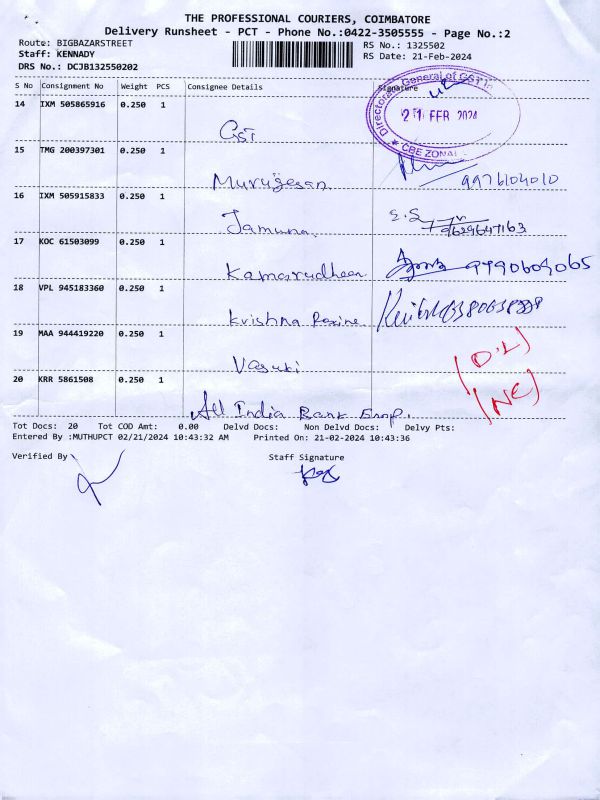 THE PROFESSIONAL COURIERS, COIMBATORE
Delivery Runsheet - PCT - Phone No.:0422-3505555 - Page No.:2
Route: BIGBAZARSTREET
RS No.: 1325502
Staff: KENNADY
RS Date: 21-Feb-2024
DRS No.: DCJB132550202
S No Consignment No Weight PCS Consignee Details Signature
Directorate General of GST
21 FEB 2024
CBE ZONAL
14 IXM 505865916 0.250 1
GST
15 TMG 200397301 0.250 1
Murugesan 9976104010
16 IXM 505915833 0.250 1
Jamuna E.S
17 KOC 61503099 0.250 1
Kamarudheen
18 VPL 945183360 0.250 1
Krishna Rexine
19 MAA 944419220 0.250 1
Vasuki (D.L)
20 KRR 5861508 0.250 1
(NC)
All India Bank Emp.
Tot Docs: 20 Tot COD Amt: 0.00 Delvd Docs: Non Delvd Docs: Delvy Pts:
Entered By :MUTHUPCT 02/21/2024 10:43:32 AM Printed On: 21-02-2024 10:43:36
Verified By
Staff Signature